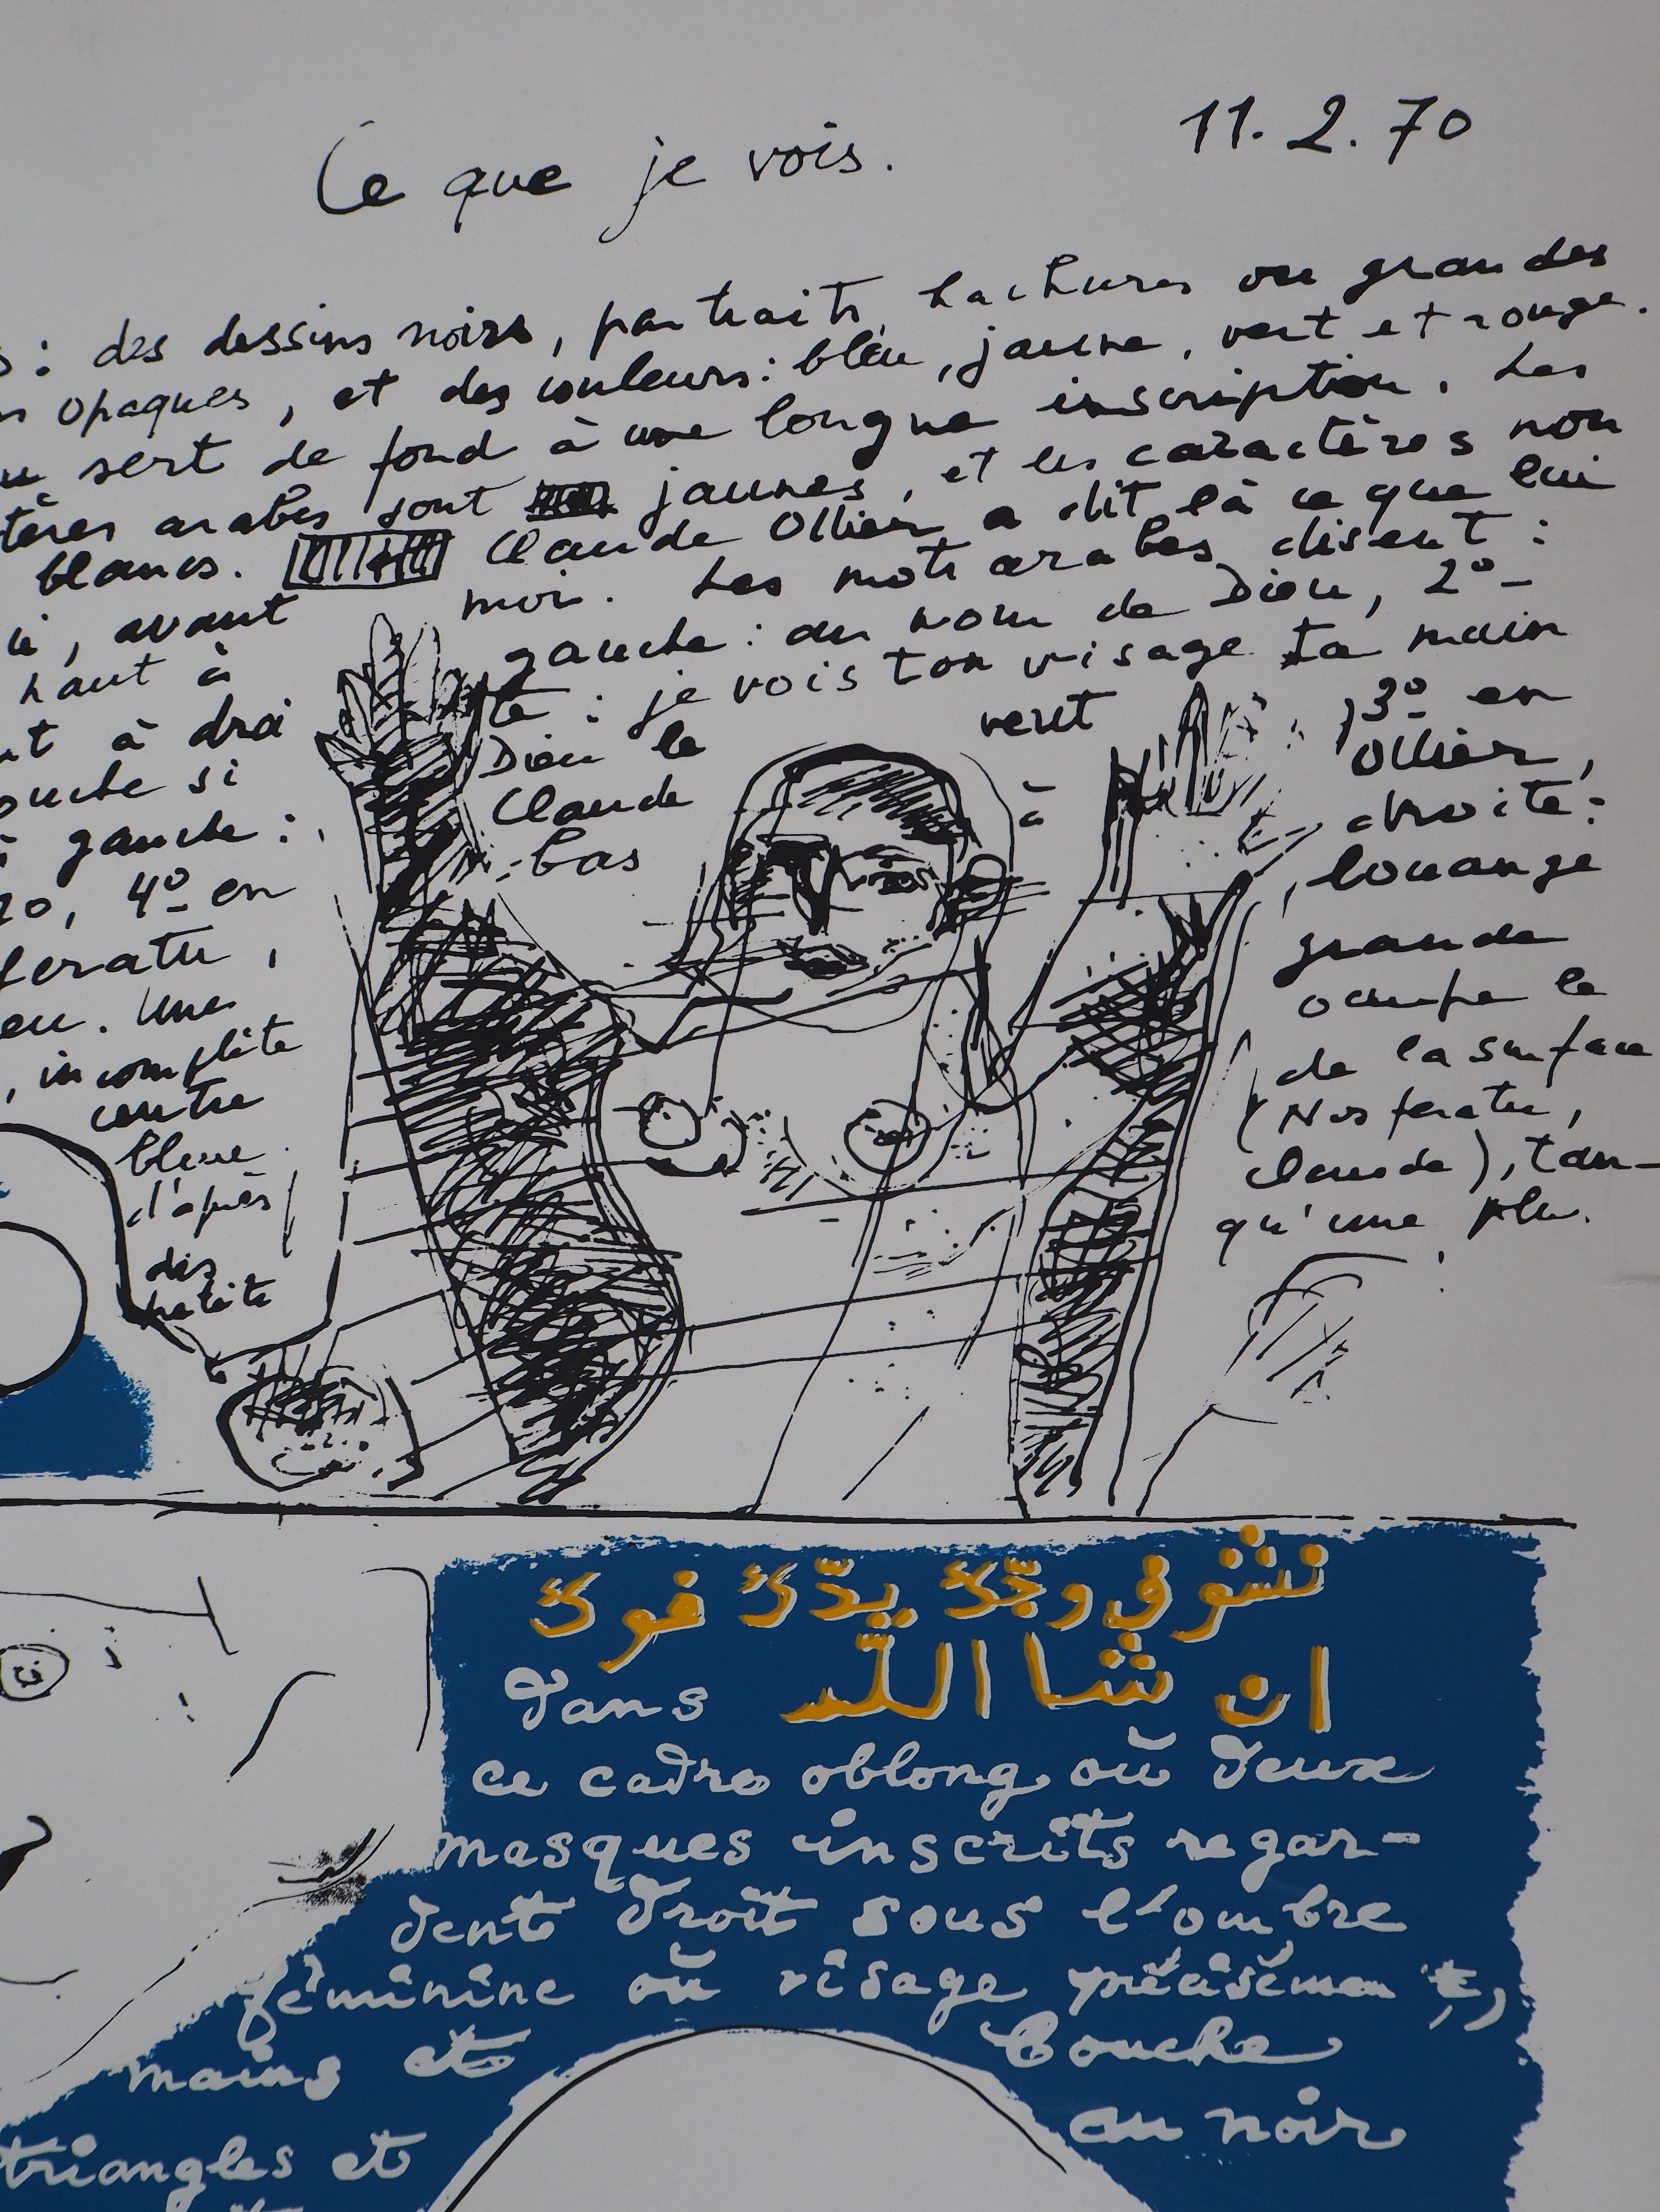 Ce que je vois.
11. 2. 70
: des dessins noirs, par traits, hachures ou grandes
opaques, et des couleurs : bleu, jaune, vert et rouge.
sert de fond à une longue inscription. Les
tères arabes sont jaunes, et les caractères non
blancs. Claude Ollier a dit là ce que lui
moi. Les mots arabes disent :
, avant
gauche : au nom de Dieu, 2º-
haut à
te : je vois ton visage ta main
t à droi
Dieu le veut, 3º en
ouche si
Claude à Ollier,
à gauche :
-bas droite :
20, 4º en
louange
feratu,
grande
eu. Une
occupe le
, incomplète
de la surface
centre
(Nosferatu,
bleue
Claude), tan-
d'après
qu'une plu.
des
petits
نشوفي وجّك يدّك فوك
ان شا اللّه
dans
ce cadre oblong où deux
masques inscrits regar-
dent droit sous l'ombre
féminine où visage précisément,
mains et bouche
au noir
triangles et